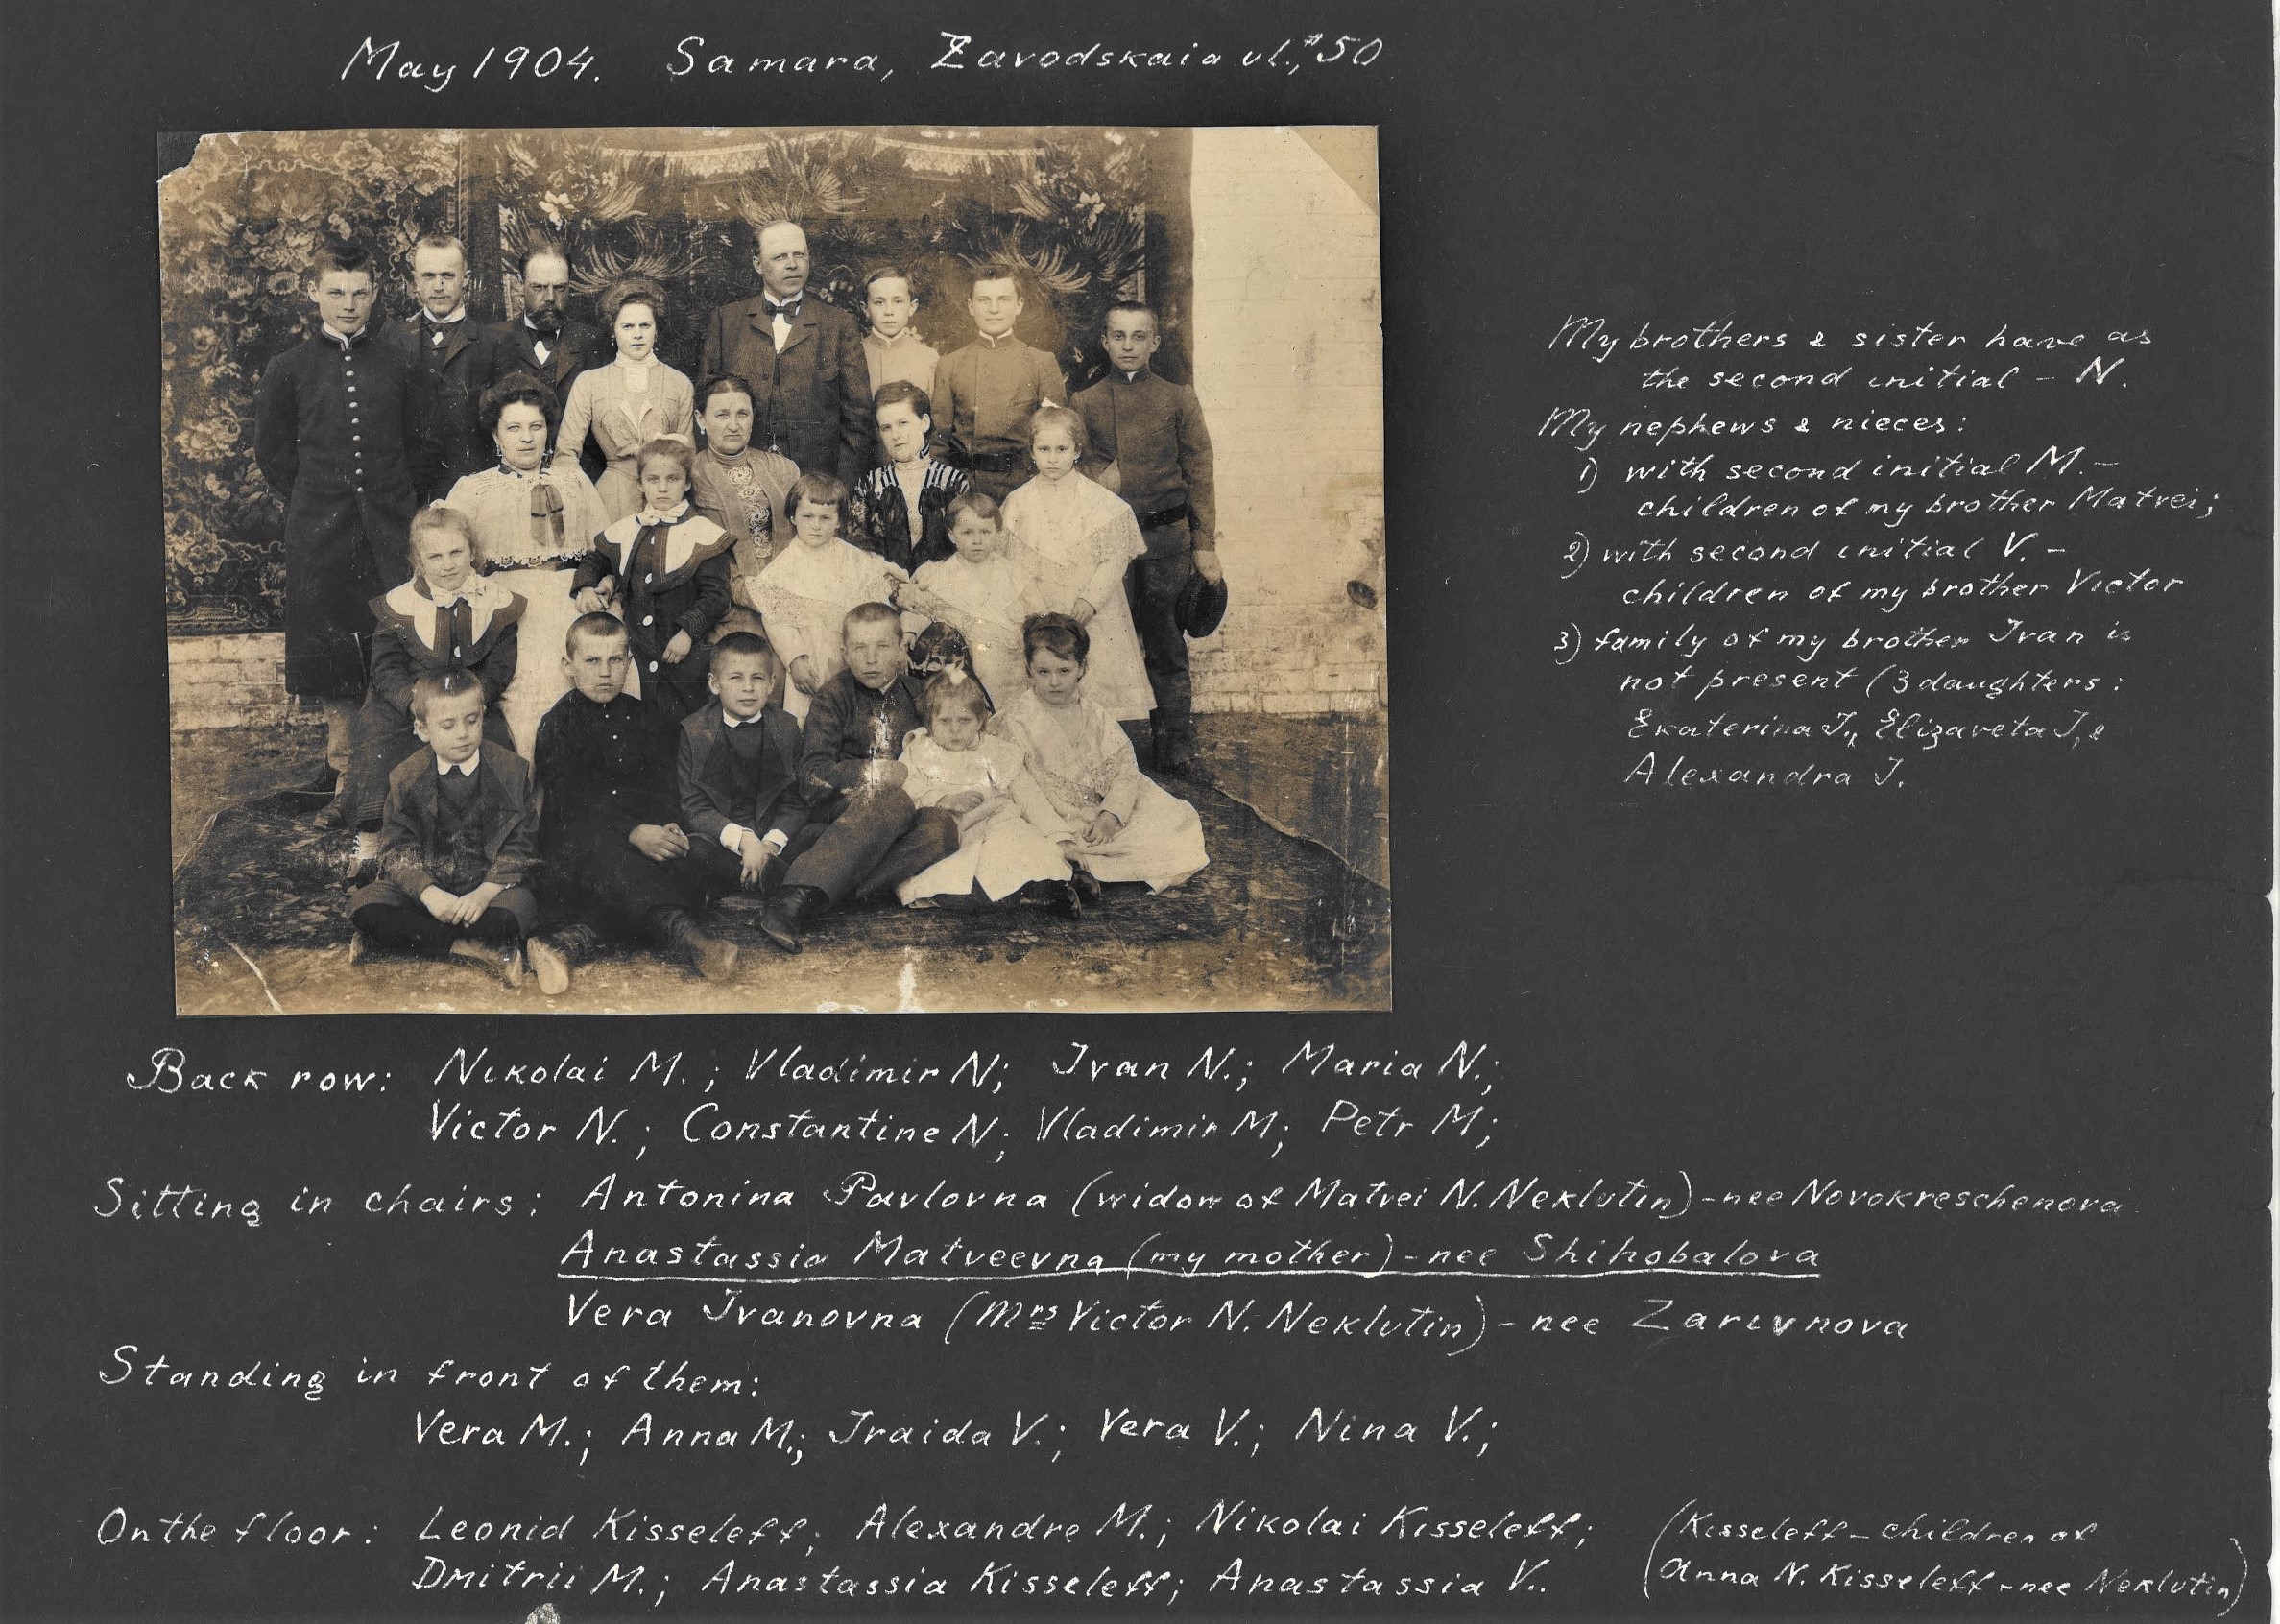 May 1904. Samara, Zavodskaia ul., #50
My brothers & sister have as
the second initial - N.
My nephews & nieces:
1) with second initial M. -
children of my brother Matvei;
2) with second initial V. -
children of my brother Victor
3) family of my brother Ivan is
not present (3 daughters:
Ekaterina I., Elizaveta I., &
Alexandra I.
Back row: Nikolai M.; Vladimir N; Ivan N.; Maria N.;
Victor N.; Constantine N; Vladimir M; Petr M;
Sitting in chairs: Antonina Pavlovna (widow of Matvei N. Neklutin) - nee Novokreschenova
Anastassia Matveevna (my mother) - nee Shihobalova
Vera Ivanovna (Mrs Victor N. Neklutin) - nee Zarivnova
Standing in front of them:
Vera M.; Anna M.; Iraida V.; Vera V.; Nina V.;
On the floor: Leonid Kisseleff; Alexandre M.; Nikolai Kisseleff;
Dmitrii M.; Anastassia Kisseleff; Anastassia V..
(Kisseleff - children of
Anna N. Kisseleff - nee Neklutin)